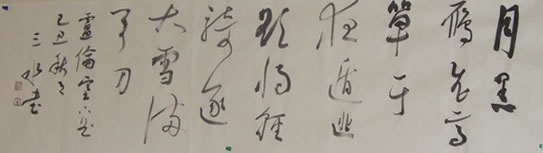 月黑
鴈飛高
單于
夜遁逃
欲將輕
騎逐
大雪滿
弓刀
盧倫塞下曲
己丑秋
三
書